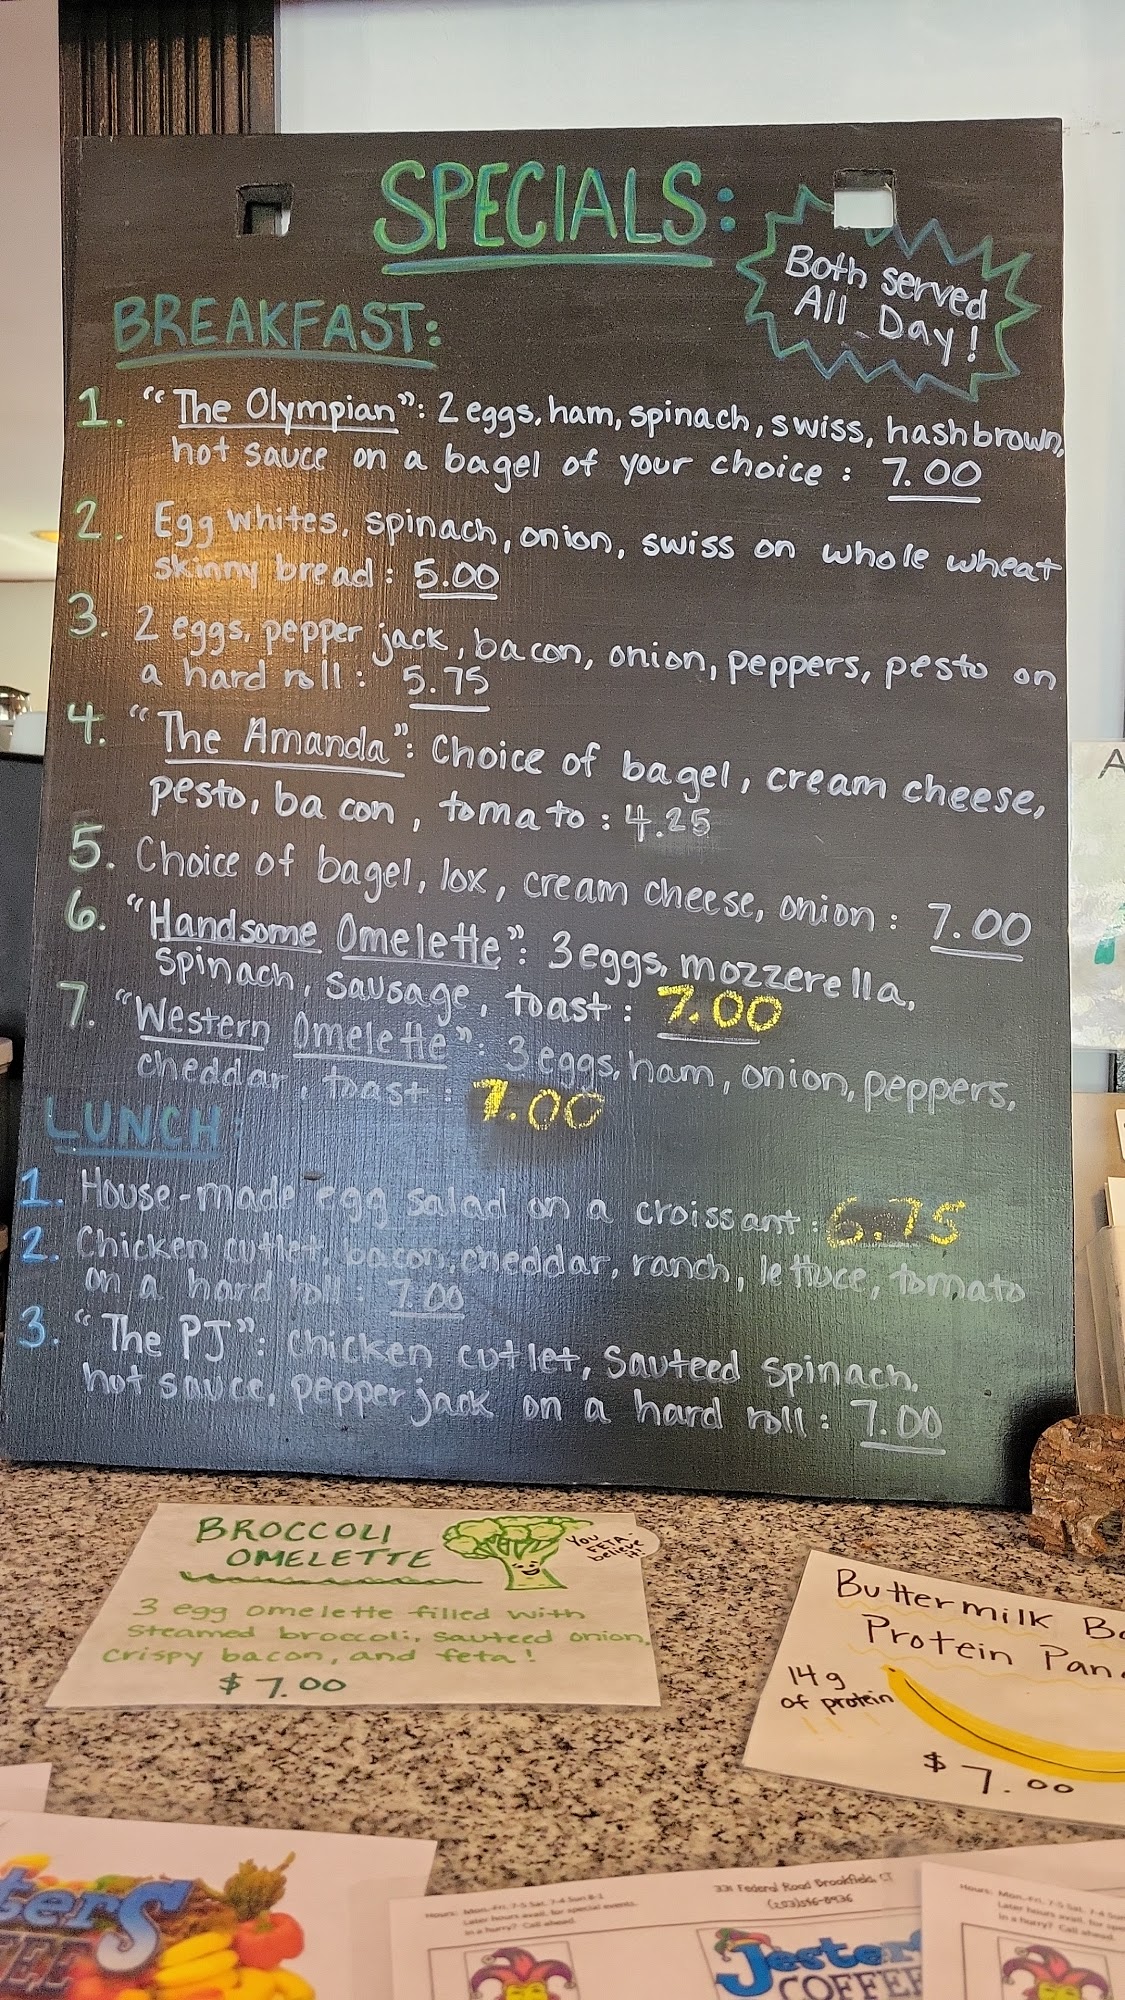 SPECIALS:
Both served
All Day!
BREAKFAST:
1. "The Olympian": 2 eggs, ham, spinach, swiss, hashbrown,
hot sauce on a bagel of your choice: 7.00
2. Egg whites, spinach, onion, swiss on whole wheat
skinny bread: 5.00
3. 2 eggs, pepper jack, bacon, onion, peppers, pesto on
a hard roll: 5.75
4. "The Amanda": Choice of bagel, cream cheese,
pesto, bacon, tomato: 4.25
5. Choice of bagel, lox, cream cheese, onion: 7.00
6. "Handsome Omelette": 3 eggs, mozzerella,
spinach, sausage, toast: 7.00
7. "Western Omelette": 3 eggs, ham, onion, peppers,
cheddar, toast: 7.00
LUNCH
1. House-made egg salad on a croissant: 6.75
2. Chicken cutlet, bacon, cheddar, ranch, lettuce, tomato
on a hard roll: 7.00
3. "The PJ": Chicken cutlet, Sauteed spinach,
hot sauce, pepper jack on a hard roll: 7.00
BROCCOLI
OMELETTE
You
FETA-
believe
it!
3 egg omelette filled with
steamed broccoli, sauteed onion,
crispy bacon, and feta!
$7.00
Buttermilk Ba
Protein Pan
14g
of protein
$7.00
A
sters
FEE
Hours: Mon.-Fri. 7-5 Sat. 7-4 Sun 8-1
Later hours avail. for special events.
In a hurry? Call ahead.
331 Federal Road Brookfield, CT
Jester
COFFEE
Hours: Mon.-Fri. 7-5 Sat. 7-4 Sun
Later hours avail. for spe
In a hurry? Call ahead.